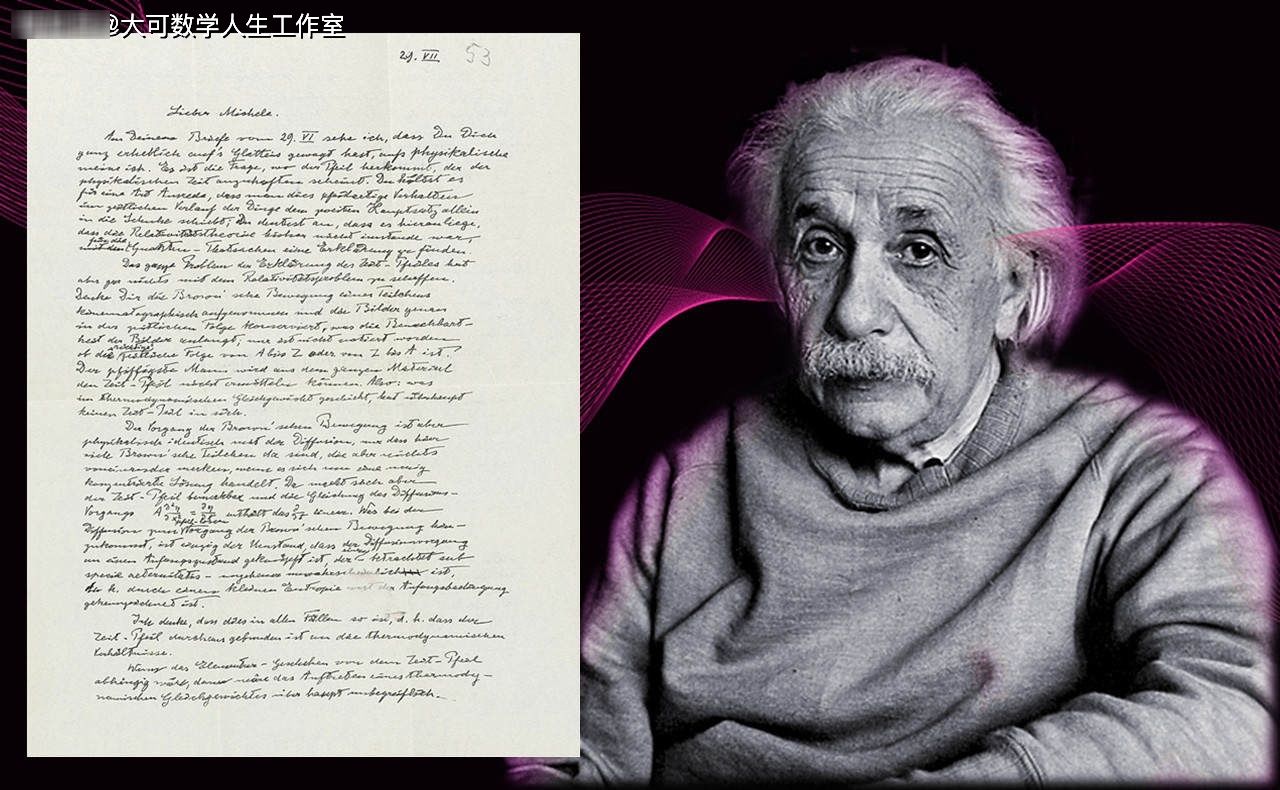 @大可数学人生工作室
29. VII. 53
Lieber Michele.
In Deinem Briefe vom 29. VI sehe ich, dass Du Dich
ganz erheblich auf's Glatteis gewagt hast, aufs physikalische
meine ich. Es ist die Frage, wo der Pfeil herkommt, der der
physikalischen Zeit anzuhaften scheint. Du hältst es
für eine Art Ausrede, dass man dies pfeilartige Verhalten
im zeitlichen Verlauf der Dinge dem zweiten Hauptsatz allein
in die Schuhe schiebt; Du deutest an, dass es hieran liege,
dass die Relativitätstheorie bisher nicht imstande war,
für die Quanten-Thatsachen eine Erklärung zu finden.
Das ganze Problem der Erklärung des Zeit-Pfeiles hat
aber gar nichts mit dem Relativitätsproblem zu schaffen.
Denke Dir die Brown'sche Bewegung eines Teilchens
kinematographisch aufgenommen und die Bilder genau
in der zeitlichen Folge konserviert, was die Benachbart-
heit der Bilder anlangt; nur ist nicht notiert worden
ob die richtige zeitliche Folge von A bis Z oder von Z bis A ist.
Der pfiffigste Mann wird aus dem ganzen Material
den Zeit-Pfeil nicht ermitteln können. Also: was
im thermodynamischen Gleichgewicht geschieht, hat überhaupt
keinen Zeit-Pfeil in sich.
Der Vorgang der Brown'schen Bewegung ist aber
physikalisch identisch mit der Diffusion, nur dass hier
viele Brown'sche Teilchen da sind, die aber nichts
voneinander merken, wenn es sich um eine wenig
konzentrierte Lösung handelt. Da macht sich aber
der Zeit-Pfeil bemerkbar und die Gleichung des Diffusions-
Vorgangs A ∂²η/∂x² = ∂η/∂t enthält das ∂/∂t linear. Was bei der
Diffusion zum Pfeil-losen Vorgang der Brown'schen Bewegung hin-
zukommt, ist einzig der Umstand, dass der Diffusionsvorgang
an einen Anfangszustand geknüpft ist, der betrachtet sub
specie aeternitatis - ungeheuer unwahrscheinlich ist,
d. h. durch einen kleinen Entropie der Anfangsbedingung
gekennzeichnet ist.
Ich denke, dass dies in allen Fällen so ist, d. h. dass der
Zeit-Pfeil durchaus gebunden ist an die thermodynamischen
Verhältnisse.
Wenn das Elementar-Geschehen von dem Zeit-Pfeil
abhängig wäre, dann wäre das Auftreten eines thermody-
namischen Gleichgewichtes überhaupt unbegreiflich.